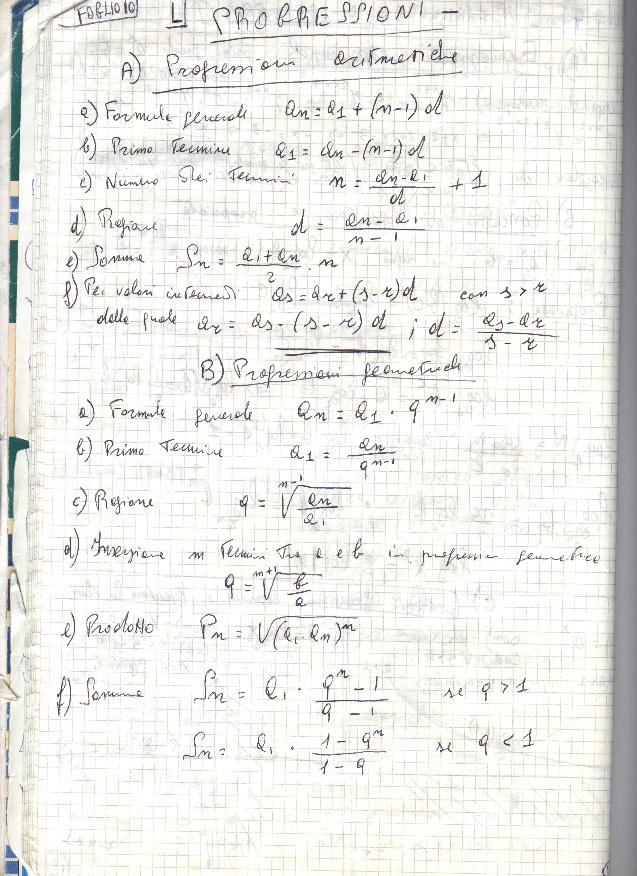 FOGLIO 10
L PROGRESSIONI -
A) Progressioni aritmetiche
a) Formula generale an = a1 + (n-1) d
b) Primo Termine a1 = an - (n-1) d
c) Numero dei Termini n = (an - a1)/d + 1
d) Ragione d = (an - a1)/(n - 1)
e) Somma Sn = (a1 + an)/2 · n
f) Per valori intermedi as = ar + (s-r) d con s > r
dalla quale ar = as - (s - r) d ; d = (as - ar)/(s - r)
B) Progressioni geometriche
a) Formula generale an = a1 · q^(n-1)
b) Primo Termine a1 = an/q^(n-1)
c) Ragione q = ⁿ⁻¹√(an/a1)
d) Inserzione m Termini Tra a e b in progressione geometrica
q = ᵐ⁺¹√(b/a)
e) Prodotto Pn = √(a1 · an)^n
f) Somma Sn = a1 · (q^n - 1)/(q - 1) se q > 1
Sn = a1 · (1 - q^n)/(1 - q) se q < 1